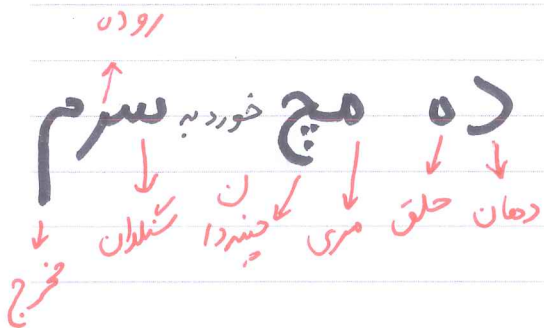 روده
ده مچ خورد به سرم
دهان حلق مری چینه‌دان سنگدان مخرج